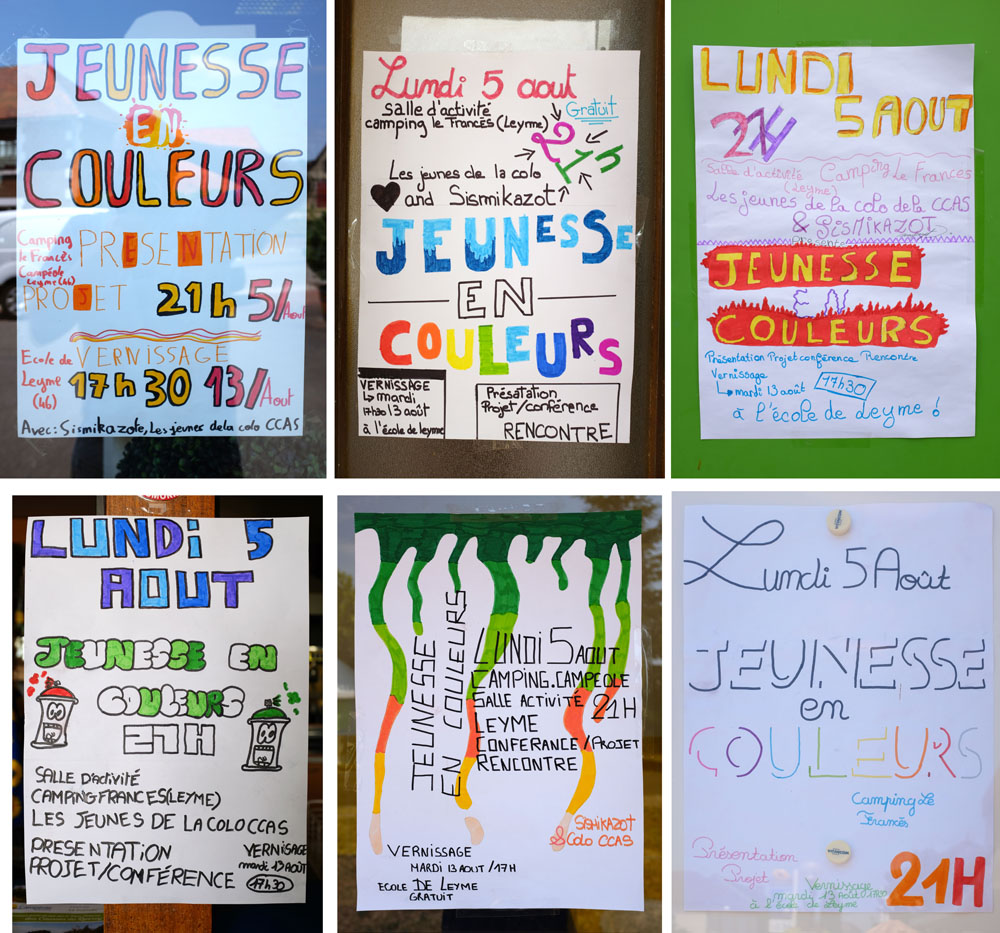 JEUNESSE
EN
COULEURS
Camping
le Francès
Campéole
Leyme (46)
PRESENTATION
PROJET 21h 5/Aout
Ecole de
Leyme
(46)
VERNISSAGE
17h30 13/Aout
Avec: Sismikazote, Les jeunes de la colo CCAS
Lundi 5 aout
salle d'activité
Gratuit
camping le Francès (Leyme)
21h
Les jeunes de la colo
and Sismikazot
JEUNESSE
EN
COULEURS
VERNISSAGE
mardi
17h30 13 août
à l'école de leyme
Présatation
Projet/conférence
RENCONTRE
LUNDI
5 AOUT
21H
Salle d'activité Camping Le Francès
(Leyme)
Les jeunes de la colo de la CCAS
& SISMIKAZOT
Présente
JEUNESSE
EN
COULEURS
Présentation Projet conférence Rencontre
Vernissage
mardi 13 août 17h30
à l'école de Leyme !
LUNDI 5
AOUT
JEUNESSE EN
COULEURS
21H
SALLE D'ACTIVITÉ
CAMPING FRANCES (LEYME)
LES JEUNES DE LA COLO CCAS
PRESENTATION
PROJET/CONFÉRENCE
VERNISAGE
mardi 13 AOÛT
17h30
JEUNESSE
EN COULEURS
LUNDI 5 AOUT
CAMPING.CAMPEOLE
SALLE ACTIVITÉ 21H
LEYME
CONFERANCE/PROJET
RENCONTRE
SISMIKAZOT
& COLO CCAS
VERNISSAGE
MARDI 13 AOUT/17H
ECOLE DE LEYME
GRATUIT
Lundi 5 Août
JEUNESSE
en
COULEURS
Camping Le
Francès
Présentation
Projet
Vernissage
mardi 13 Août 17h30
à l'école de Leyme
21H